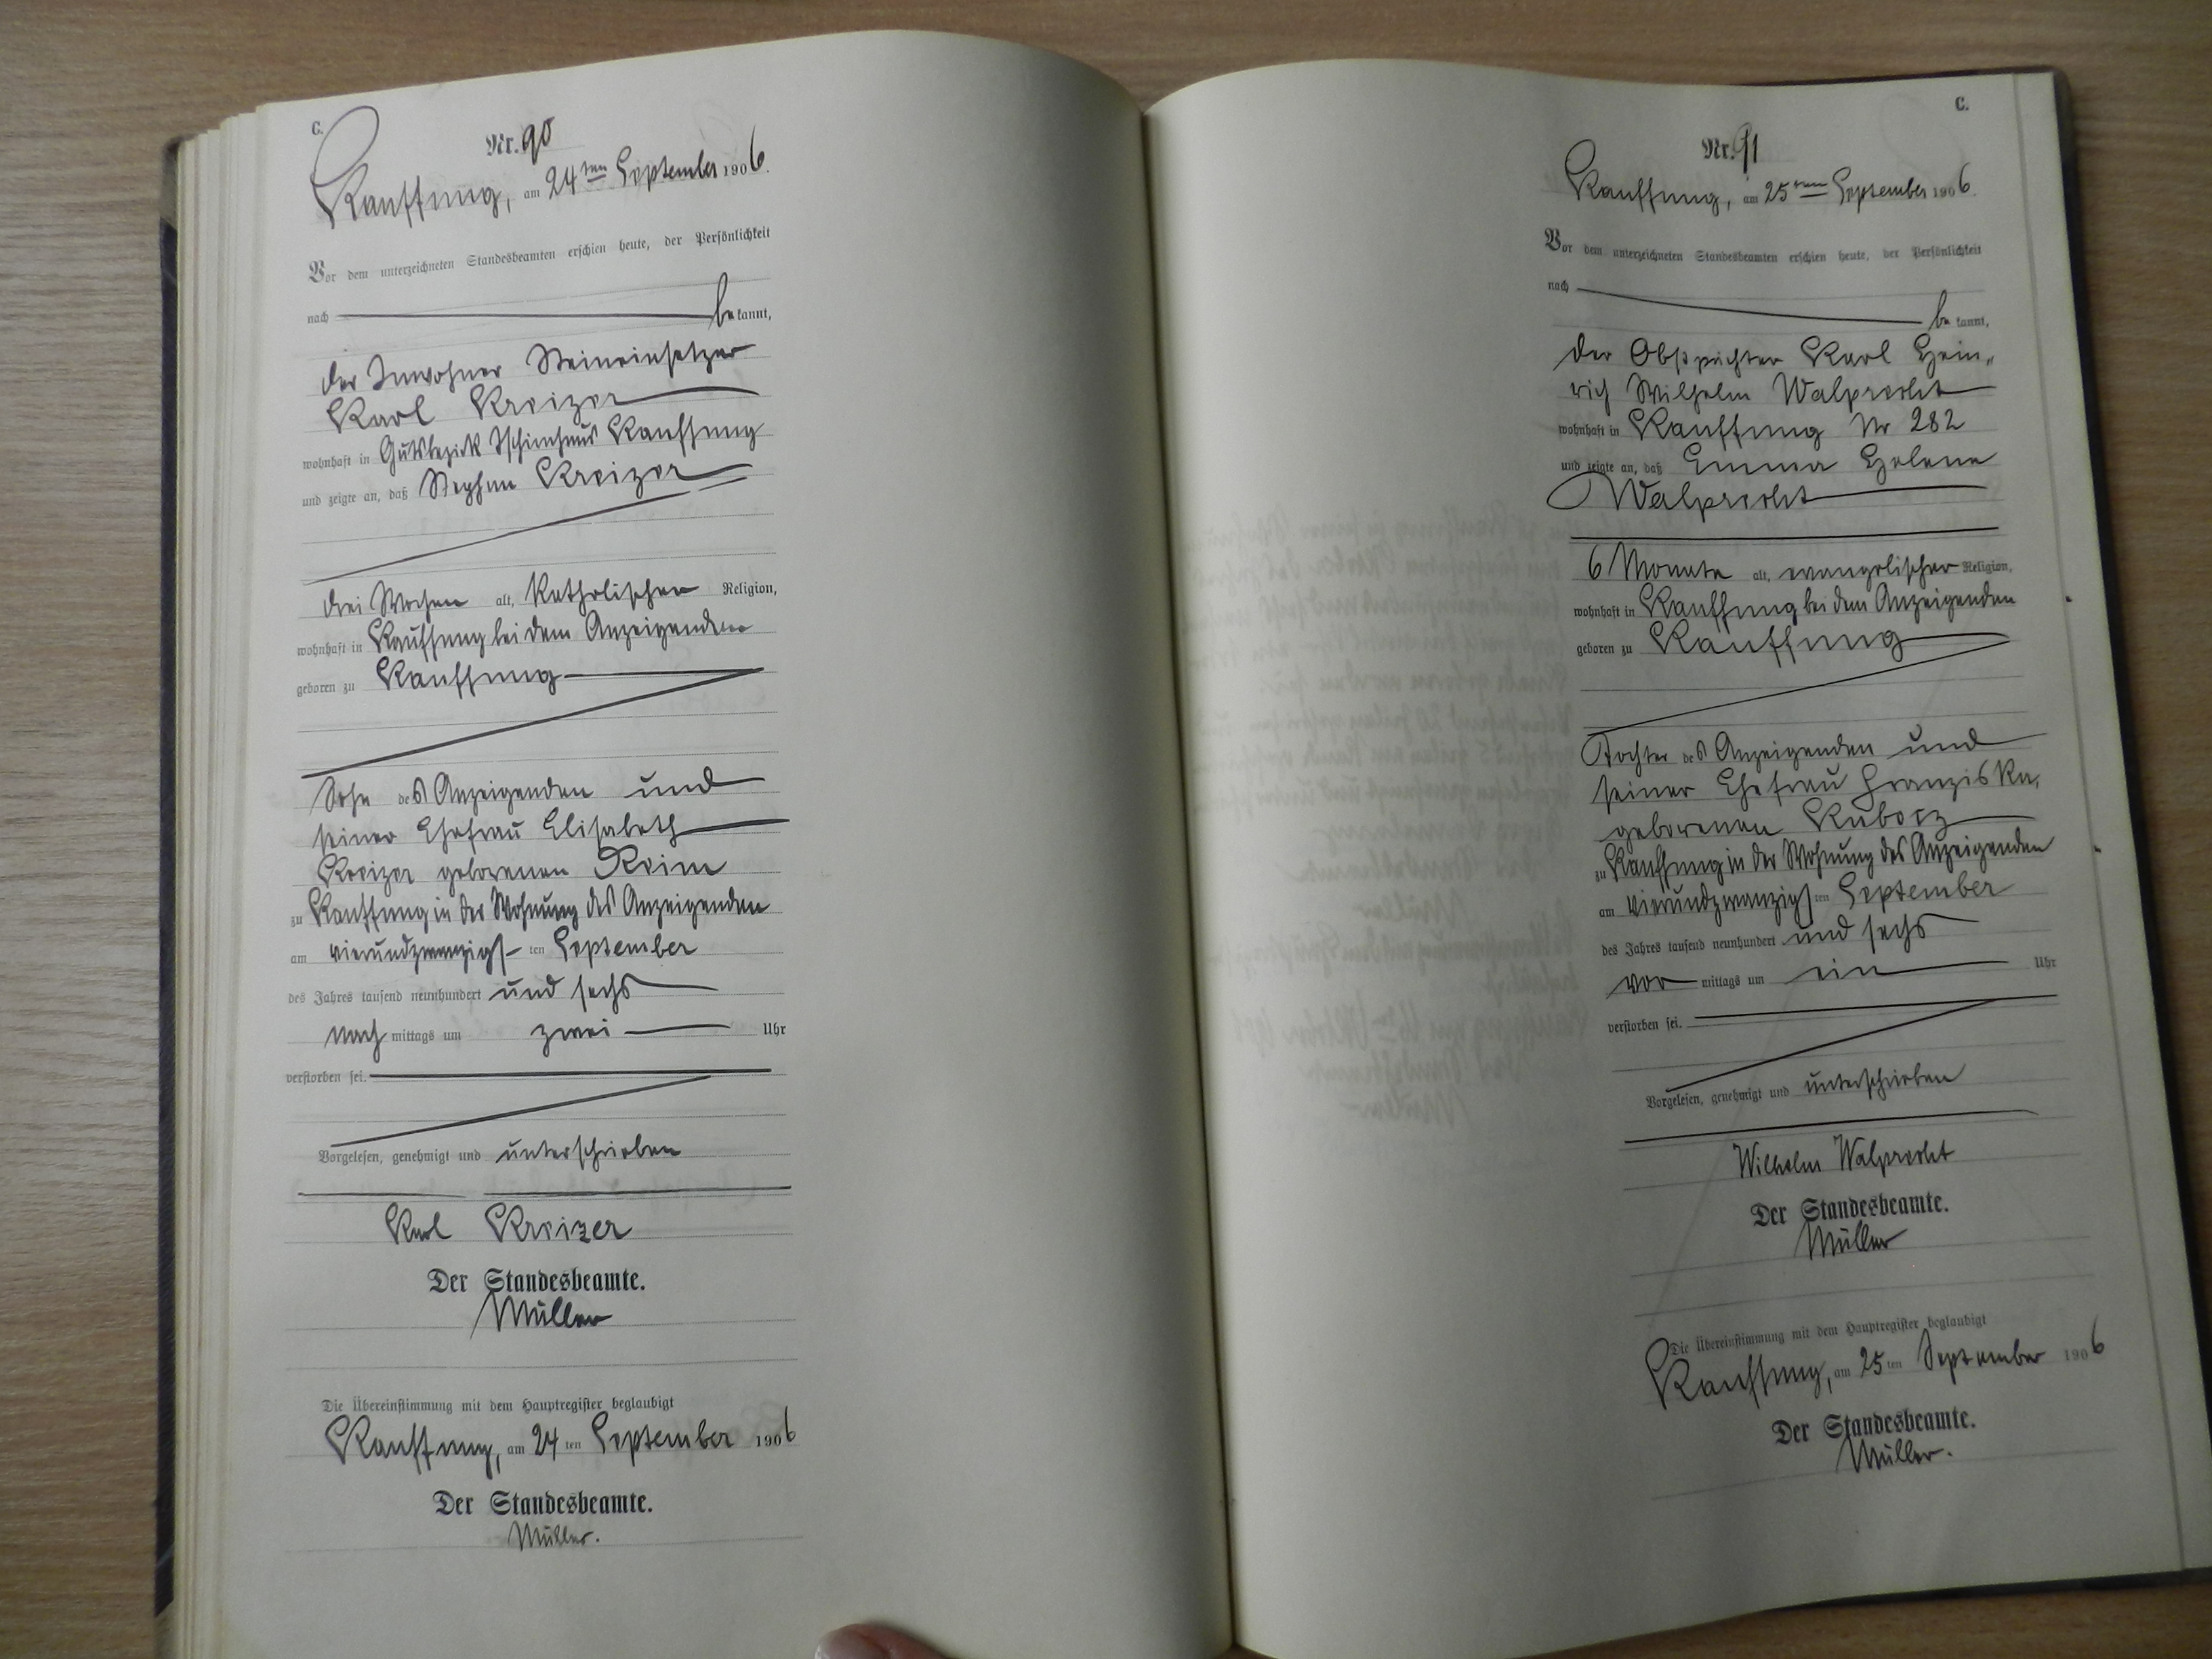 C.
Nr. 90
Kauffung, am 24ten September 1906.
Vor dem unterzeichneten Standesbeamten erschien heute, der Persönlichkeit
nach bekannt,
der Inwohner Steineinsetzer
Karl Kreizer
wohnhaft in Gutsbezirk Tschirnhaus Kauffung
und zeigte an, daß Stephan Kreizer
drei Wochen alt, katholischer Religion,
wohnhaft in Kauffung bei dem Anzeigenden
geboren zu Kauffung
Sohn des Anzeigenden und
seiner Ehefrau Elisabeth
Kreizer geborenen Reim
zu Kauffung in der Wohnung des Anzeigenden
am vierundzwanzigsten September
des Jahres tausend neunhundert und sechs
nachmittags um zwei Uhr
verstorben sei.
Vorgelesen, genehmigt und unterschrieben
Karl Kreizer
Der Standesbeamte.
Müller
Die Übereinstimmung mit dem Hauptregister beglaubigt
Kauffung, am 24ten September 1906
Der Standesbeamte.
Müller.
C.
Nr. 91
Kauffung, am 25ten September 1906.
Vor dem unterzeichneten Standesbeamten erschien heute, der Persönlichkeit
nach bekannt,
der Obstpächter Karl Hein„
rich Wilhelm Walprecht
wohnhaft in Kauffung Nr 282
und zeigte an, daß Emma Helene
Walprecht
6 Monate alt, evangelischer Religion,
wohnhaft in Kauffung bei dem Anzeigenden
geboren zu Kauffung
Tochter des Anzeigenden und
seiner Ehefrau Franziska,
geborenen
zu Kauffung in der Wohnung des Anzeigenden
am vierundzwanzigsten September
des Jahres tausend neunhundert und sechs
vormittags um ein Uhr
verstorben sei.
Vorgelesen, genehmigt und unterschrieben
Wilhelm Walprecht
Der Standesbeamte.
Müller
Die Übereinstimmung mit dem Hauptregister beglaubigt
Kauffung, am 25ten September 1906
Der Standesbeamte.
Müller.